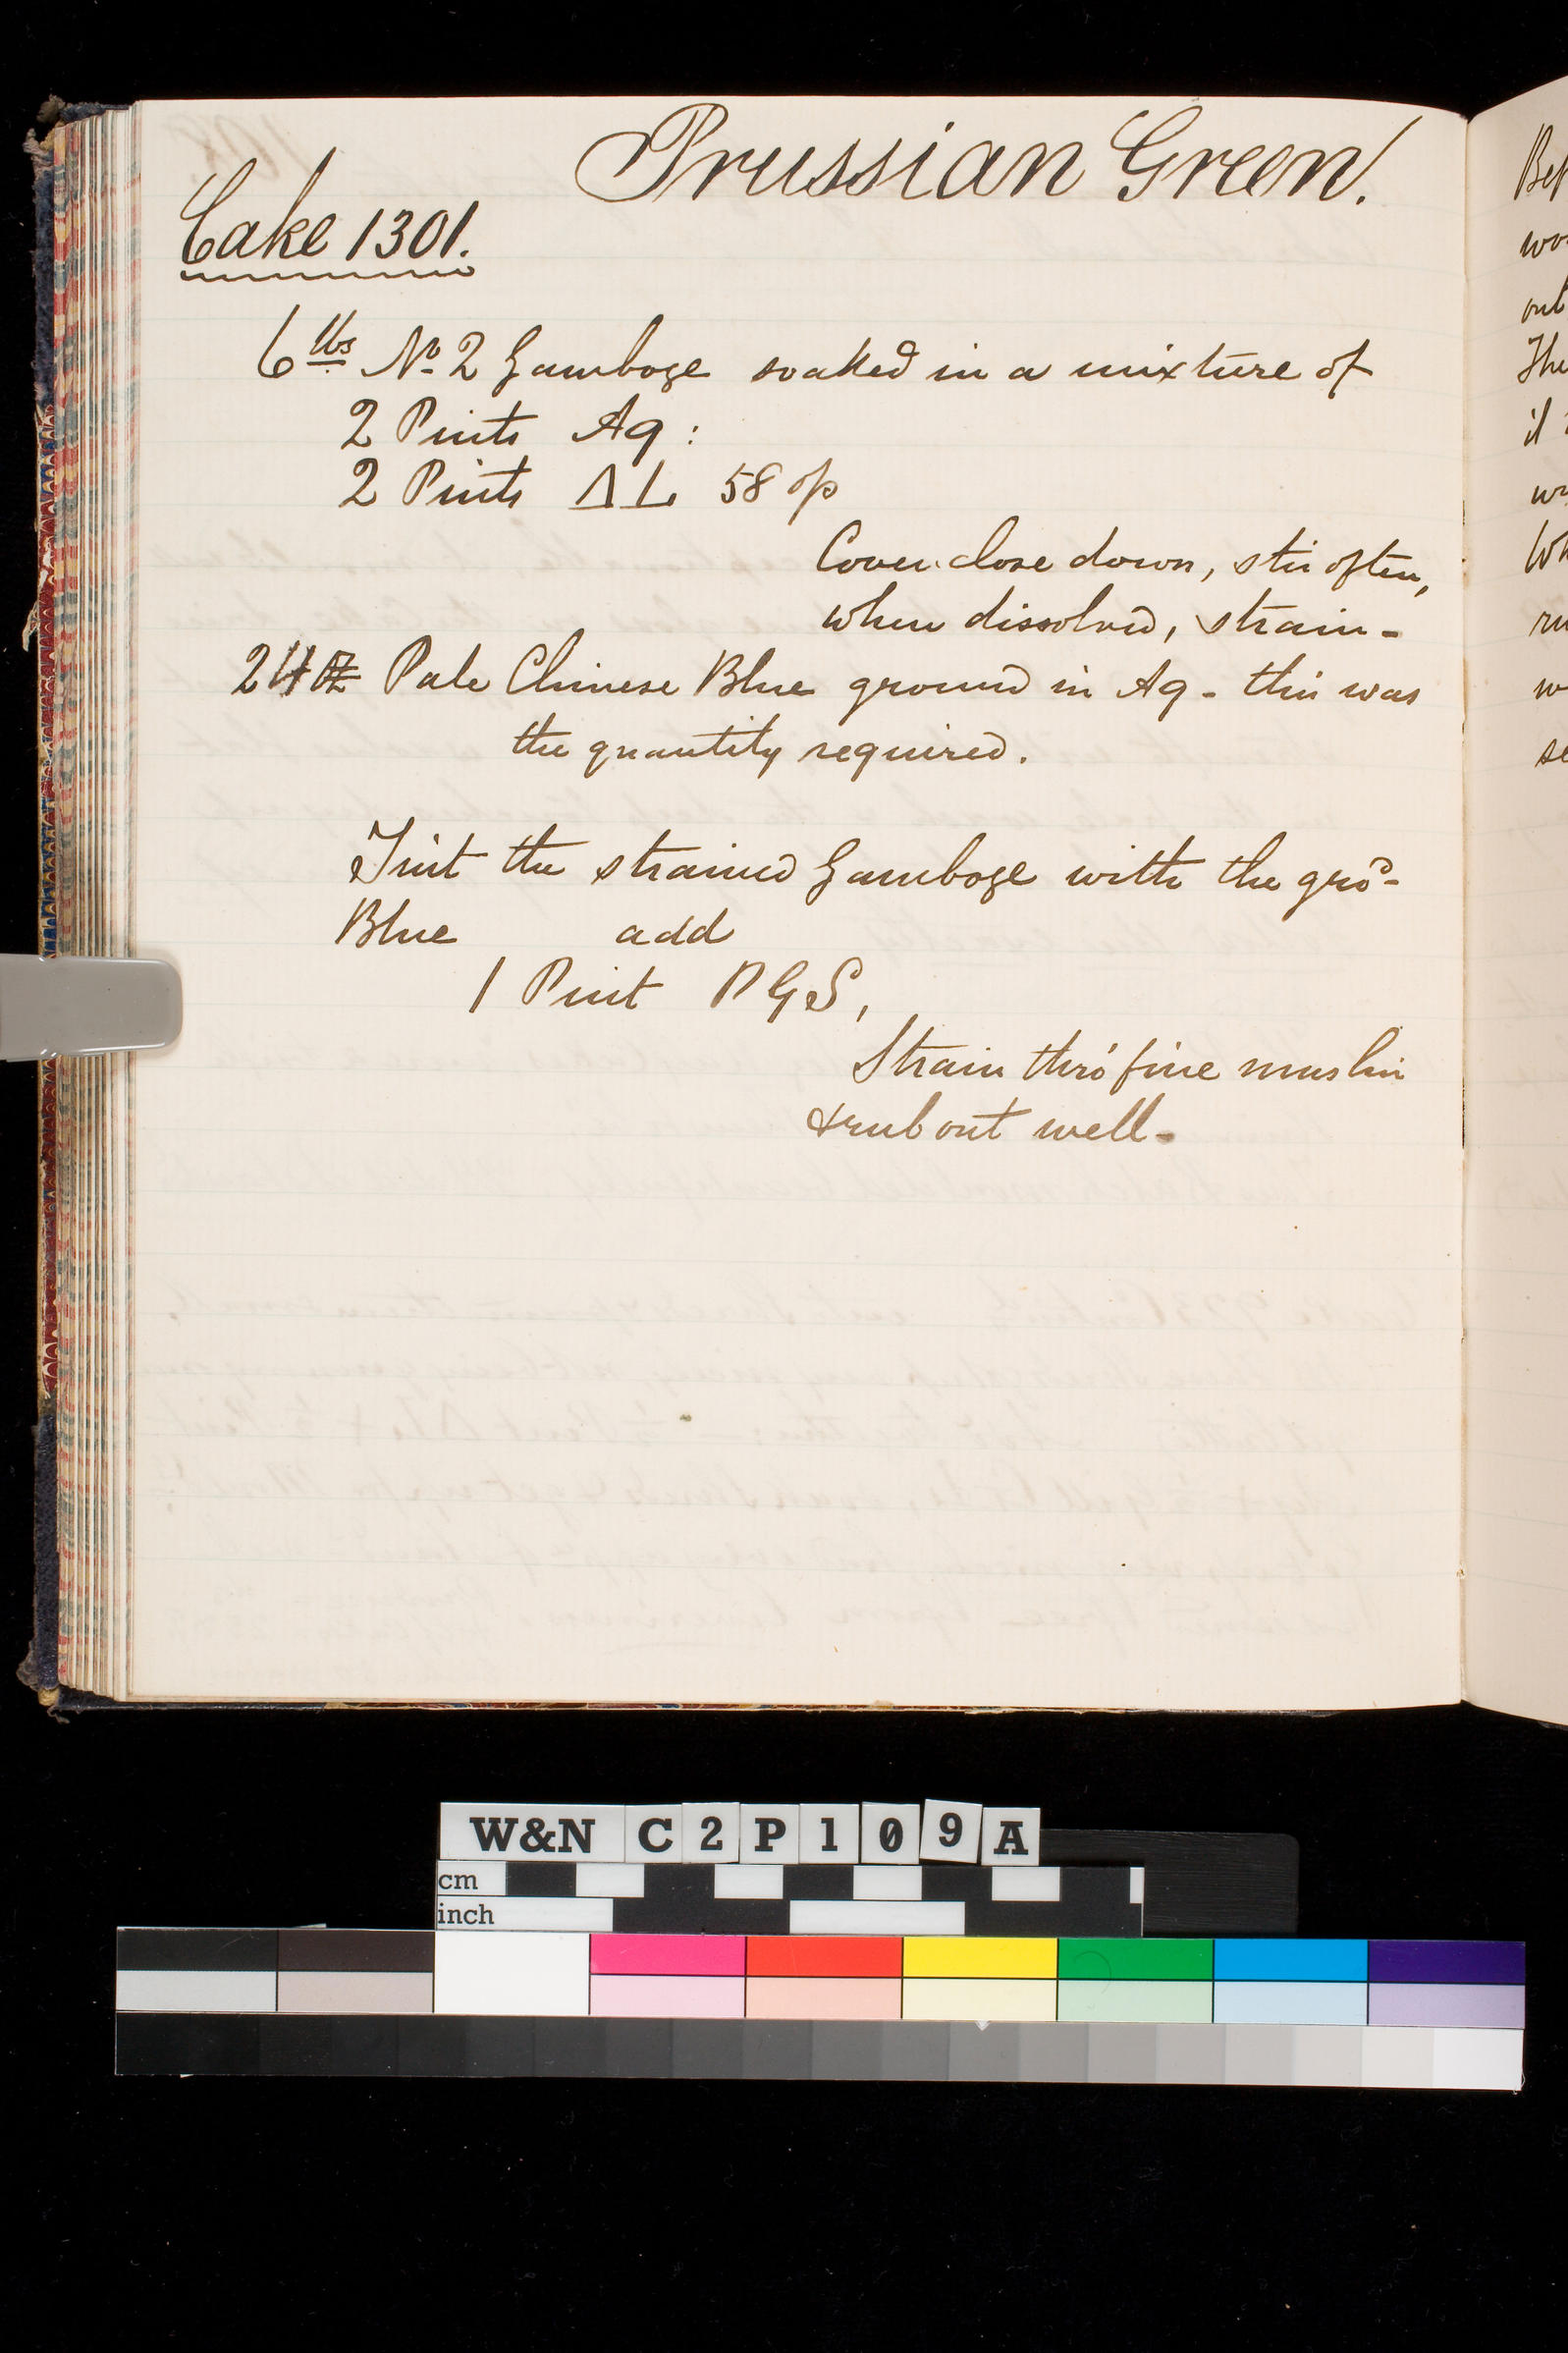 Prussian Green.
Cake 1301.
6 lbs No 2 Gamboge soaked in a mixture of
2 Pints Aq:
2 Pints ΔL 58 op
Cover close down, stir often,
when dissolved, strain-
24 oz Pale Chinese Blue ground in Aq - this was
the quantity required.
Tint the strained Gamboge with the gro^d-
Blue add
1 Pint PGS,
Strain thro' fine muslin
& rub out well-
W&N C2P109A
cm
inch